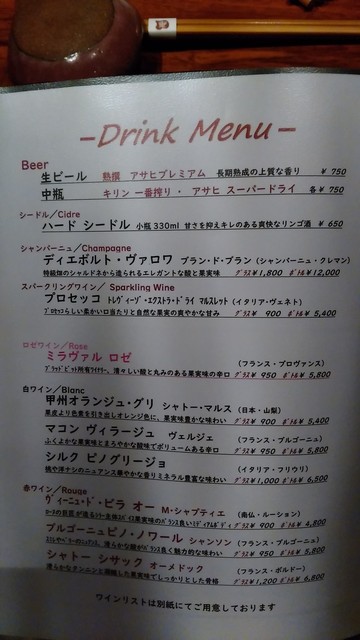 -Drink Menu-
Beer
生ビール 熟撰 アサヒプレミアム 長期熟成の上質な香り ¥ 750
中瓶 キリン 一番搾り・ アサヒ スーパードライ 各¥ 750
シードル/Cidre
ハード シードル 小瓶330ml 甘さを抑えキレのある爽快なリンゴ酒 ¥ 650
シャンパーニュ/Champagne
ディエボルト・ヴァロワ ブラン・ド・ブラン (シャンパーニュ・クレマン)
特級畑のシャルドネから造られるエレガントな酸と果実味 グラス¥1,800 ボトル¥12,000
スパークリングワイン/ Sparkling Wine
プロセッコ トレヴィーゾ・エクストラ・ドライ マルスレット (イタリア・ヴェネト)
プロセッコらしい柔かい口当たりと自然な果実の爽やかな甘み グラス¥ 900 ボトル¥5,400
ロゼワイン/Rose
ミラヴァル ロゼ (フランス・プロヴァンス)
ブラッドピット所有ワイナリー。清々しい酸と丸みのある果実味の辛口 グラス¥ 950 ボトル¥ 5,800
白ワイン/Blanc
甲州オランジュ・グリ シャトー・マルス (日本・山梨)
果皮より色素を引き出しオレンジ色に、果実味豊かな味わい グラス¥ 900 ボトル¥ 5,400
マコン ヴィラージュ ヴェルジェ (フランス・ブルゴーニュ)
ふくよかな果実味とまろやかな酸味でボリュームある辛口 グラス¥ 950 ボトル¥ 5,800
シルク ピノグリージョ (イタリア・フリウリ)
桃や洋ナシのニュアンス華やかな香りミネラル豊富な味わい グラス¥1,000 ボトル¥ 6,500
赤ワイン/Rouge
ヴィーニュ・ド・ビラ オー M・シャプティエ (南仏・ルーション)
果実味のバランス良いミディアムボディ グラス¥ 900 ボトル¥ 4,800
ブルゴーニュピノ・ノワール シャンソン (フランス・ブルゴーニュ)
滑らかな酸がバランス良く魅力的な味わい グラス¥ 950 ボトル¥ 5,800
シャトー シサック オーメドック (フランス・ボルドー)
滑らかなタンニンと凝縮した果実味でしっかりとした骨格 グラス¥1,200 ボトル¥ 6,800
ワインリストは別紙にてご用意しております